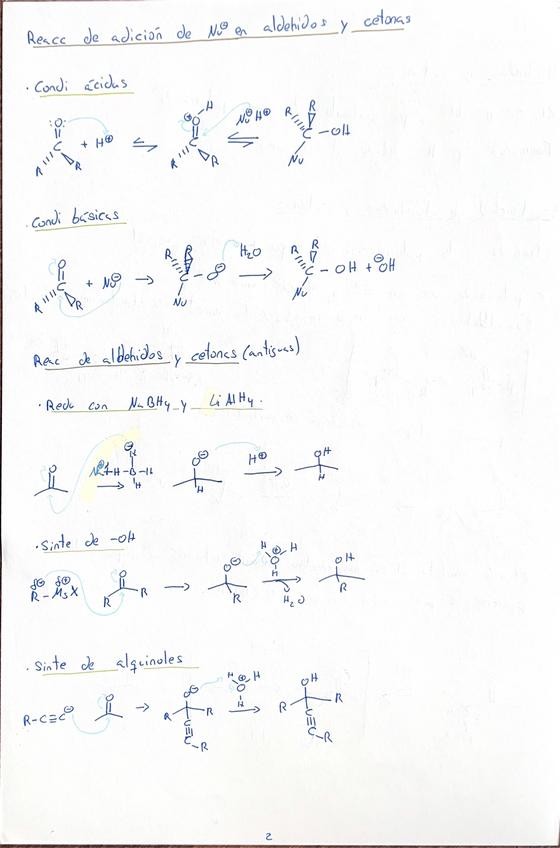 Reacc de adición de Nu⊖ en aldehidos y cetonas
· Condi ácidas
:O: C R R + H⊕ ⇌ H O⊕ C R R Nu⊖H⊕ ⇌ R R C - OH Nu
· Condi básicas
O C R R + Nu⊖ → R R C - O⊖ Nu H₂O → R R C - OH + ⊖OH Nu
Reac de aldehidos y cetonas (antiguas)
· Redu con NaBH4 y LiAlH4.
O Na⊕ H-B-H H H ⊖ → O⊖ H H⊕ → OH H
· Sinte de -OH
δ⊖ δ⊕ R - MgX O R R → O⊖ R H ⊕O H H → H₂O OH R
· Sinte de alquinoles
R-C≡C⊖ O → O⊖ R R C≡C-R H ⊕O H H → OH R R C≡C-R
2